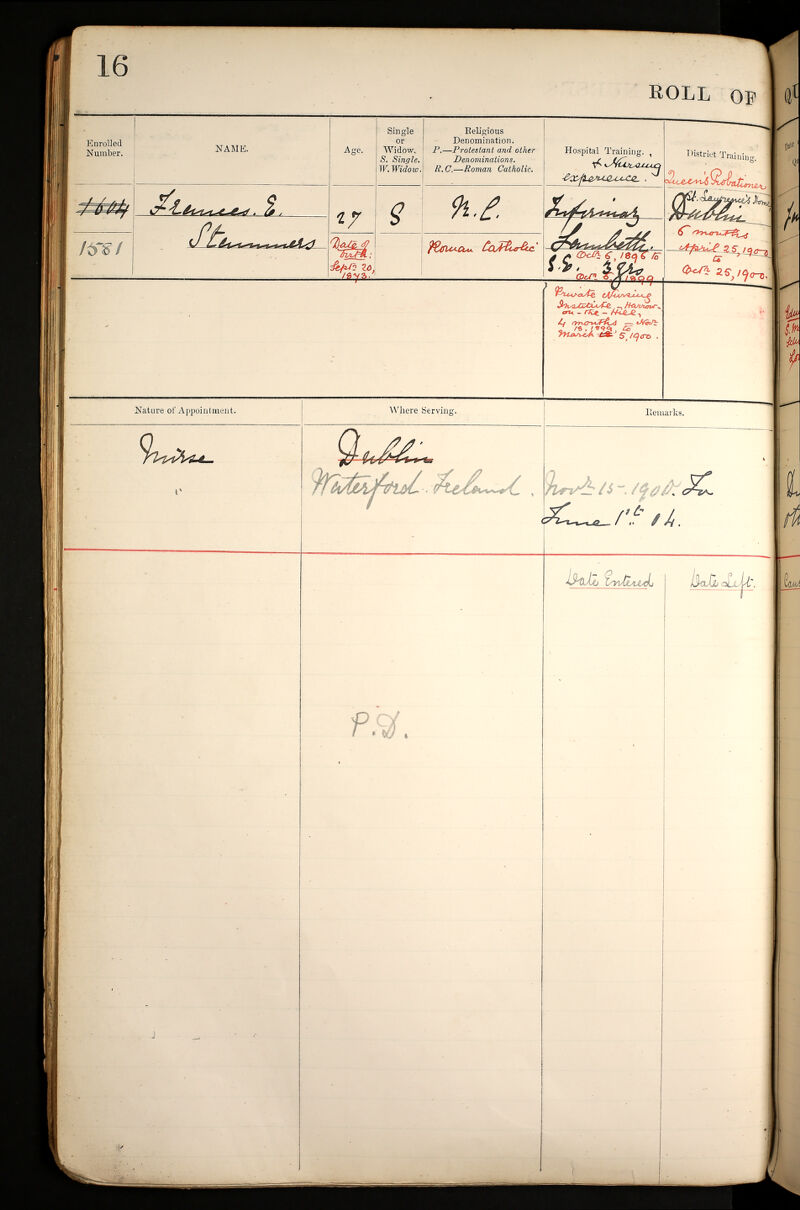 16
ROLL OF
Enrolled
Number.
NAME.
Age.
Single
or
Widow.
S. Single.
W. Widow.
Religious
Denomination.
P.—Protestant and other
Denominations.
R.C.—Roman Catholic.
Hospital Training.
& Nursing
experience.
District Training.
Queen's Probationer
1604
1581
Frances. E.
Stemmers
27
Date of
birth:
Sept 20,
1873.
S
R.C.
Roman Catholic
Infirmary
Lambeth.
S.E. Oct 6, 1896 to
3 yrs
Oct 6 1899
St. Lawrence's Home
Dublin
6 months
April 25, 1900
to
Oct 25, 1900.
Private Nursing
Institute, Harrow-
on-the-Hill,
4 months = Nov
15, 1899, to
March 5, 1900.
Nature of Appointment.
Where Serving.
Remarks.
Nurse
Dublin
Waterford. Ireland.
Nov 15. 1900. To
June 1st 04.
Date Entered
Date Left.
P.D.